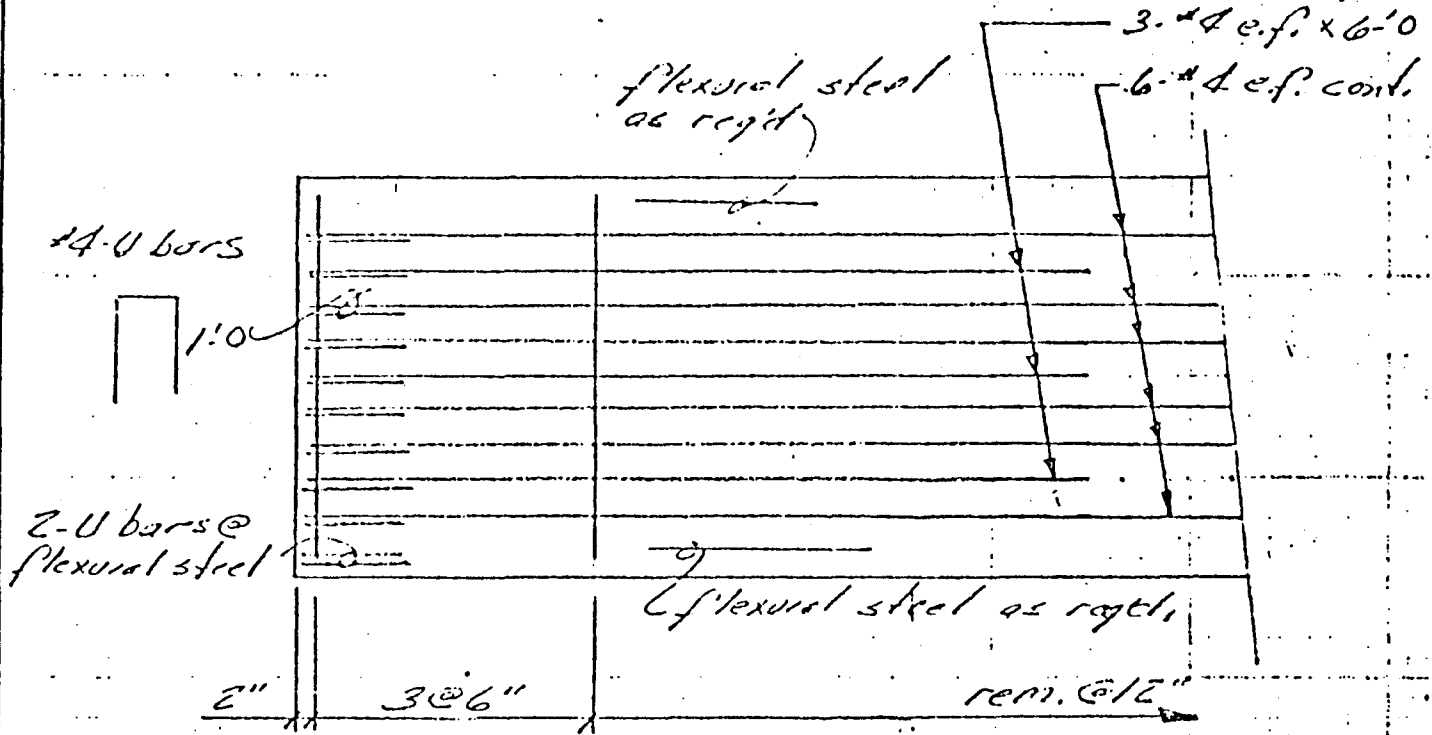 3-#4 e.f. x 6'-0
6-#4 e.f. cont.
flexural steel
as req'd
#4-U bars
1'-0
2-U bars @
flexural steel
flexural steel as reqd.
2"
3@6"
rem. @12"